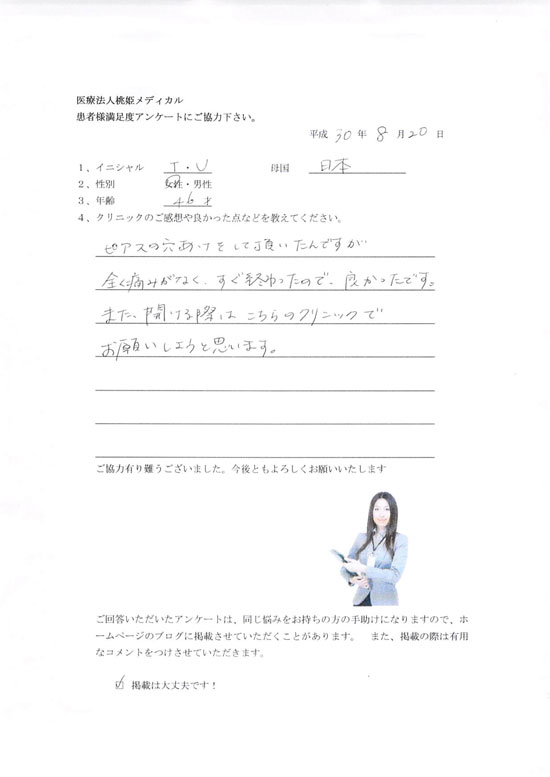 医療法人桃姫メディカル
患者様満足度アンケートにご協力下さい。
平成 30 年 8 月 20 日
1、イニシャル T・U 母国 日本
2、性別 女性・男性
3、年齢 46才
4、クリニックのご感想や良かった点などを教えてください。
ピアスの穴あけをして頂いたんですが
全く痛みがなく、すぐ終わったので、良かったです。
また、開ける際は こちらのクリニックで
お願いしようと思います。
ご協力有り難うございました。今後ともよろしくお願いいたします
ご回答いただいたアンケートは、同じ悩みをお持ちの方の手助けになりますので、ホ
ームページのブログに掲載させていただくことがあります。 また、掲載の際は有用
なコメントをつけさせていただきます。
☑ 掲載は大丈夫です！